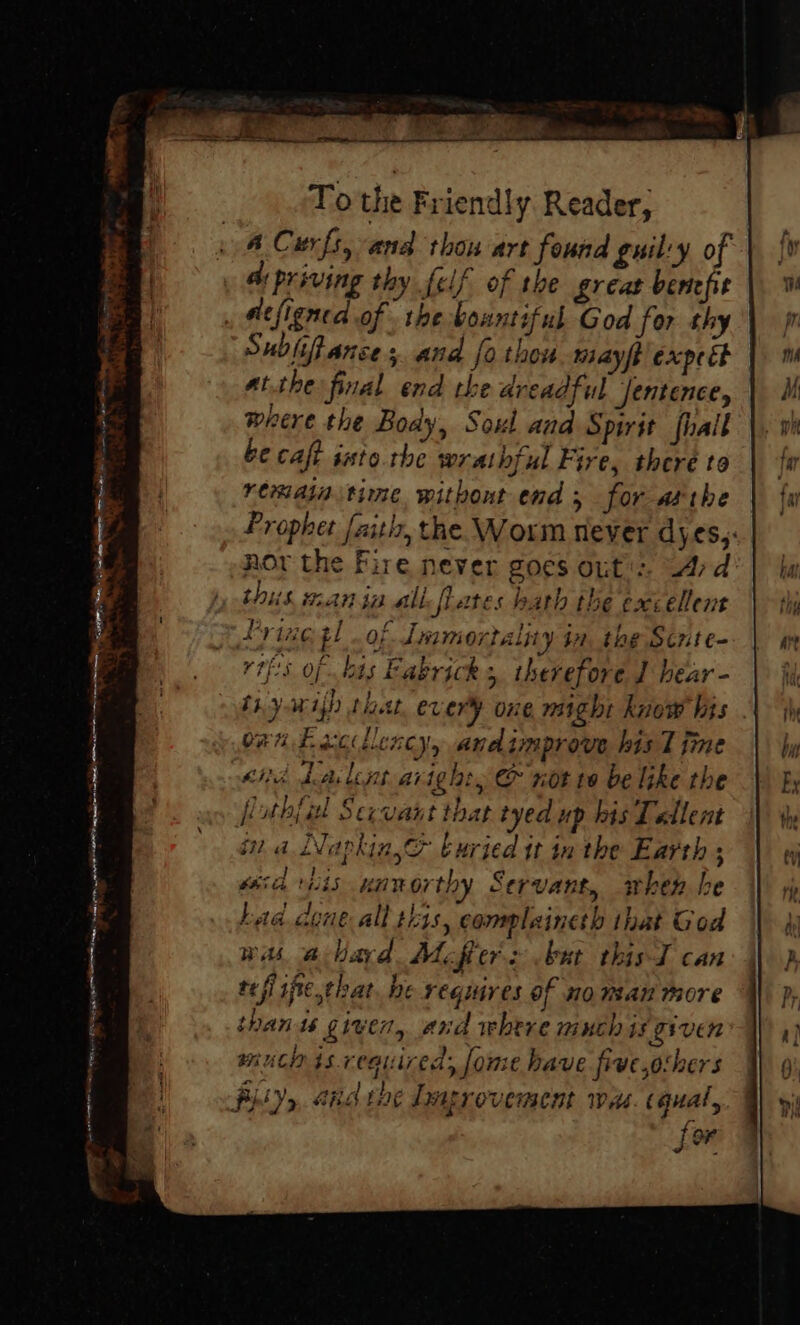 To the Friendly Reader,
a Curſs, and thou art found guilty of
depriving thy ſelf of the great benefit
deſigned of the bountiful God for thy
Subſiſtance; and ſo thou mayſt expect
at the final end the dreadful ſentence,
where the Body, Soul and Spirit ſhall
be caſt into the wrathful Fire, there to
remain time without end; for as the
Prophet ſaith, the Worm never dyes,
nor the Fire never goes out: And
thus man in all ſtates hath the excellent
Principl of Immortality in the Sente-
rifs of his Fabrick; therefore I hear-
tily wiſh that every one might know his
own Excellency, and improve his Time
and Tallent aright, & not to be like the
ſlothful Servant that tyed up his Tallent
in a Napkin, & buried it in the Earth;
and this unworthy Servant, when he
had done all this, complaineth that God
was a hard Maſter: but this I can
teſtifie, that he requires of no man more
than is given, and where much is given
much is required; ſome have five, others
fifty, and the Improvement was equal,
for